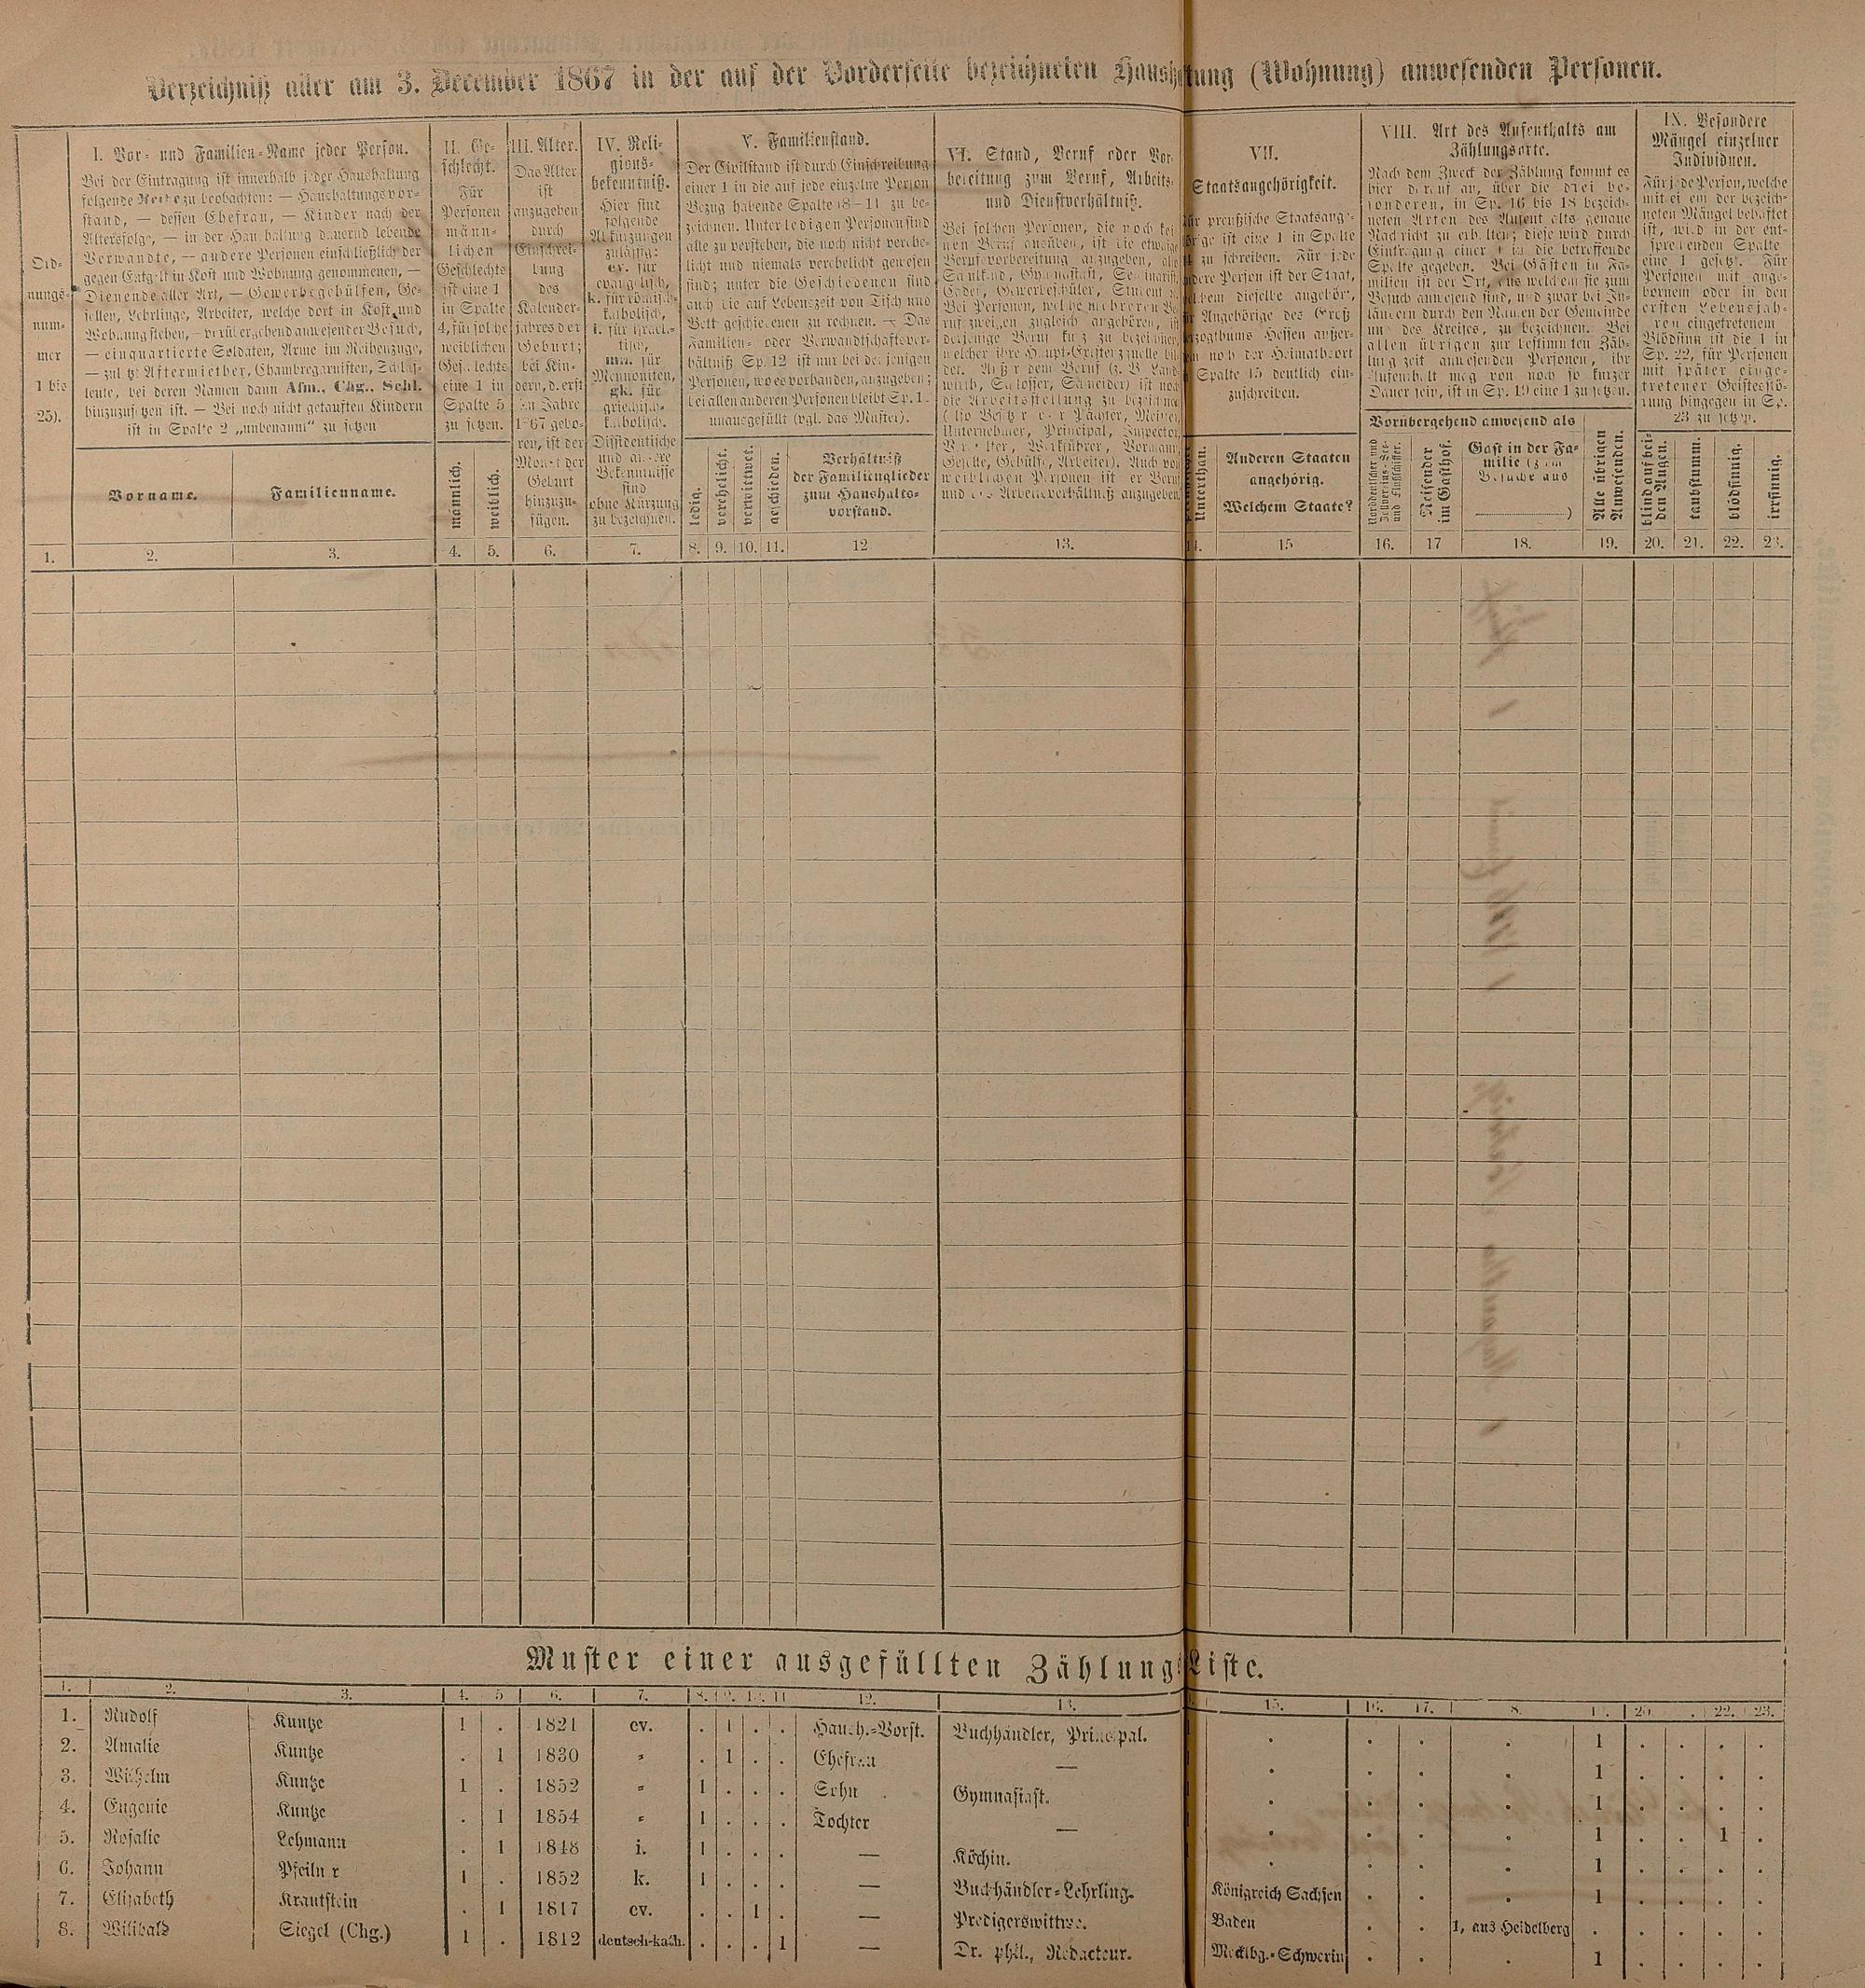 Verzeichniß aller am 3. December 1867 in der auf der Vorderseite bezeichneten Haushaltung (Wohnung) anwesenden Personen.
Ord-
nungs-
num-
mer
1 bis
25).
I. Vor- und Familien-Name jeder Person.
Bei der Eintragung ist innerhalb jeder Haushaltung
folgende Reihe zu beobachten: — Haushaltungsvor-
stand, — dessen Ehefrau, — Kinder nach der
Altersfolge, — in der Haushaltung dauernd lebende
Verwandte, — andere Personen einschließlich der
gegen Entgelt in Kost und Wohnung genommenen, —
Dienende aller Art, — Gewerbsgehülfen, Ge-
sellen, Lehrlinge, Arbeiter, welche dort in Kost und
Wohnung stehen, — vorübergehend anwesender Besuch,
— einquartierte Soldaten, Arme im Reihenzuge,
— zuletzt Aftermiether, Chambregarnisten, Schlaf-
leute, bei deren Namen dann Afm., Chg., Schl.
hinzuzusetzen ist. — Bei noch nicht getauften Kindern
ist in Spalte 2 „unbenannt“ zu setzen
Vorname.
Familienname.
II. Ge-
schlecht.
Für
Personen
männ-
lichen
Geschlechts
ist eine 1
in Spalte
4, für solche
weiblichen
Geschlechts
eine 1 in
Spalte 5
zu setzen.
männlich.
weiblich.
III. Alter.
Das Alter
ist
anzugeben
durch
Einschrei-
bung
des
Kalender-
jahres der
Geburt;
bei Kin-
dern, d. erst
im Jahre
1867 gebo-
ren, ist der
Monat der
Geburt
hinzuzu-
fügen.
IV. Reli-
gions-
bekenntniß.
Hier sind
folgende
Abkürzungen
zulässig:
ev. für
evangelisch,
k. für römisch-
katholisch,
i. für israeli-
tisch,
mn. für
Mennoniten,
gk. für
griechisch-
katholisch.
Dissidentische
und andere
Bekenntnisse
sind
ohne Kürzung
zu bezeichnen.
V. Familienstand.
Der Civilstand ist durch Einschreibung
einer 1 in die auf jede einzelne Person
Bezug habende Spalte (8–11 zu be-
zeichnen. Unter ledigen Personen sind
alle zu verstehen, die noch nicht verehe-
licht und niemals verehelicht gewesen
sind; unter die Geschiedenen sind
auch die auf Lebenszeit von Tisch und
Bett geschiedenen zu rechnen. — Das
Familien- oder Verwandtschaftsver-
hältniß Sp. 12 ist nur bei denjenigen
Personen, wo es vorhanden, anzugeben;
bei allen anderen Personen bleibt Sp. 1
unausgefüllt (vgl. das Muster).
ledig.
verehelicht.
verwittwet.
geschieden.
Verhältniß
der Familienglieder
zum Haushalts-
vorstand.
VI. Stand, Beruf oder Vor-
bereitung zum Beruf, Arbeits-
und Dienstverhältniß.
Bei solchen Personen, die noch kei
nen Beruf ausüben, ist die etwaige
Berufsvorbereitung anzugeben, als
Schulkind, Gymnasiast, Seminarist,
Cadet, Gewerbeschüler, Student
Bei Personen, welche mehreren Be
rufszweigen zugleich angehören, ist
derjenige Beruf kurz zu bezeichnen,
welcher ihre Haupt-Existenzquelle bil
det. Außer dem Beruf (z. B. Land
wirth, Schlosser, Schneider) ist noch
die Arbeitsstellung zu bezeichnen
(also Besitzer oder Pächter, Meister,
Unternehmer, Principal, Inspector,
Verwalter, Werkführer, Vormann,
Geselle, Gehülfe, Arbeiter). Auch von
weiblichen Personen ist der Beruf
und das Arbeitsverhältniß anzugeben.
VII.
Staatsangehörigkeit.
für preußische Staatsange-
hörige ist eine 1 in Spalte
zu schreiben. Für jede
andere Person ist der Staat,
welchem dieselbe angehört,
für Angehörige des Groß
herzogthums Hessen außer-
noch der Heimathsort
Spalte 15 deutlich ein-
zuschreiben.
Unterthan.
Anderen Staaten
angehörig.
Welchem Staate?
VIII. Art des Aufenthalts am
Zählungsorte.
Nach dem Zweck der Zählung kommt es
hier darauf an, über die drei be-
sonderen, in Sp. 16 bis 18 bezeich-
neten Arten des Aufenthalts genaue
Nachricht zu erhalten; diese wird durch
Eintragung einer 1 in die betreffende
Spalte gegeben. Bei Gästen in Fa-
milien ist der Ort, aus welchem sie zum
Besuch anwesend sind, und zwar bei In-
ländern durch den Namen der Gemeinde
und des Kreises, zu bezeichnen. Bei
allen übrigen zur bestimmten Zäh-
lungszeit anwesenden Personen, ihr
Aufenthalt mag von noch so kurzer
Dauer sein, ist in Sp. 19 eine 1 zu setzen.
Vorübergehend anwesend als
Reisender
im Gasthof.
Gast in der Fa-
milie (zum
Besuche aus
)
Alle übrigen
Anwesenden.
IX. Besondere
Mängel einzelner
Individuen.
Für jede Person, welche
mit einem der bezeich-
neten Mängel behaftet
ist, wird in der ent-
sprechenden Spalte
eine 1 gesetzt. Für
Personen mit ange-
bornem oder in den
ersten Lebensjah-
ren eingetretenem
Blödsinn ist die 1 in
Sp. 22, für Personen
mit später einge-
tretener Geistesstö-
rung hingegen in Sp.
23 zu setzen.
blind auf bei-
den Augen.
taubstumm.
blödsinnig.
irrsinnig.
1. 2. 3. 4. 5. 6. 7. 8. 9. 10. 11. 12 13. 15 16. 17 18. 19. 20. 21. 22. 23.
Muster einer ausgefüllten Zählungsliste.
1. 2. 3. 4. 5 6. 7. 8. 9. 11 12. 13. 15. 16. 17. 8. 20 22. 23.
1. Rudolf Kuntze 1 . 1821 ev. . 1 . . Haush.-Vorst. Buchhändler, Principal. . . . . 1 . . . .
2. Amalie Kuntze . 1 1830 „ . 1 . . Ehefrau — . . . . 1 . . . .
3. Wilhelm Kuntze 1 . 1852 „ 1 . . . Sohn Gymnasiast. . . . . 1 . . . .
4. Eugenie Kuntze . 1 1854 „ 1 . . . Tochter — . . . . 1 . . 1 .
5. Rosalie Lehmann . 1 1848 i. 1 . . . — Köchin. . . . . 1 . . . .
6. Johann Pfeilner 1 . 1852 k. 1 . . . — Buchhändler-Lehrling. Königreich Sachsen . . . 1 . . . .
7. Elisabeth Krautstein . 1 1817 ev. . . 1 . — Predigerswittwe. Baden . . 1, aus Heidelberg . . . . .
8. Wilibald Siegel (Chg.) 1 . 1812 deutsch-kath. . . . 1 — Dr. phil., Redacteur. Mecklbg.-Schwerin . . . 1 . . . .